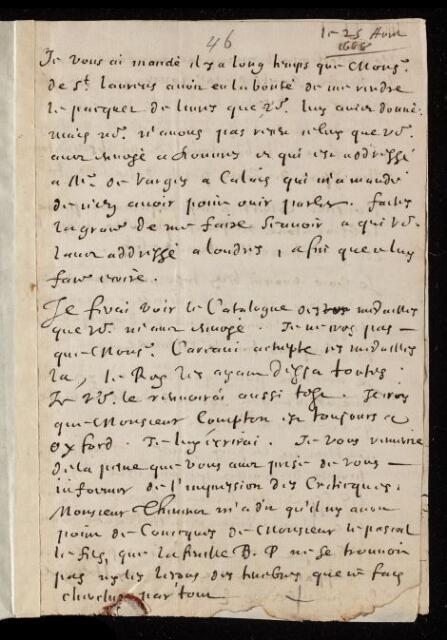 46
le 25 Avril
1668
Je vous ai mandé il y a long temps que Mons.r
de S.t laurens avoit eu la bonté de me rendre
le pacquet de livres que vo. luy aviez donné.
mais no. n'avons pas receu celuy que vo.
avez envoyé a Douvres et qui est addressé
a M.r de Varges a Calais qui m'a mandé
de n'en avoir point ouir parler. faites
la grace de me faire scavoir a qui vo.
l'avez addressé a londres, afin que luy
fasse écrire.
Je ferai voir le Catalogue des medailles
que vo. m'avez envoyé. Je ne crois pas
que Mons.r Carcavi achepte ces medailles
la, le Roy les ayant desja toutes.
Je vo. le renvoirai aussi tost. Je crois
que Monsieur Compton est tousjours a
oxford. Je luy écrirai. Je vous remercie
de la peine que vous avez prise de vous
informer de l'impression des Criticques.
Monsieur m'a dit qu'il n'y avoit
point de Conicques de Monsieur le pascal
le fils, que la feuille B. P ne se trouvoit
pas ny les leçons des tenebres que je fais
chercher par tout